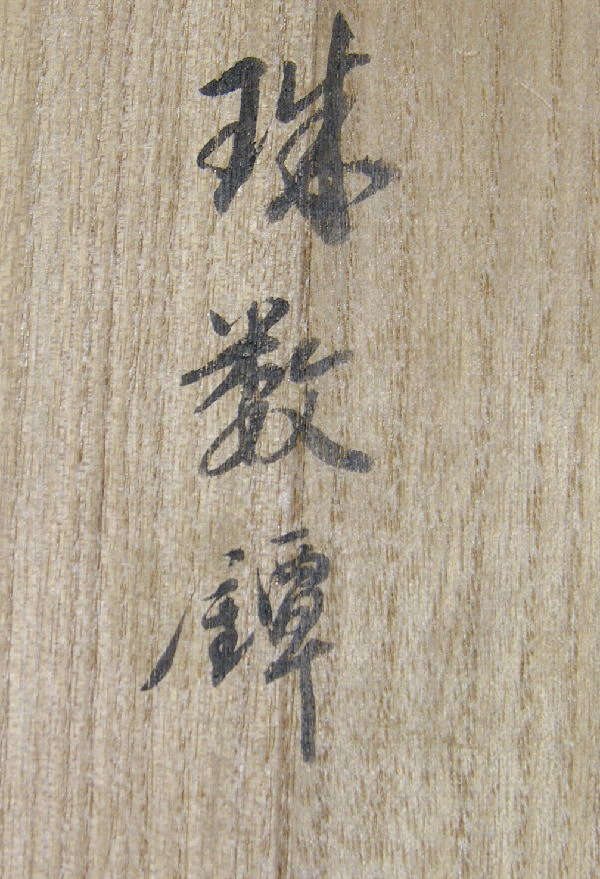 珠数鐔